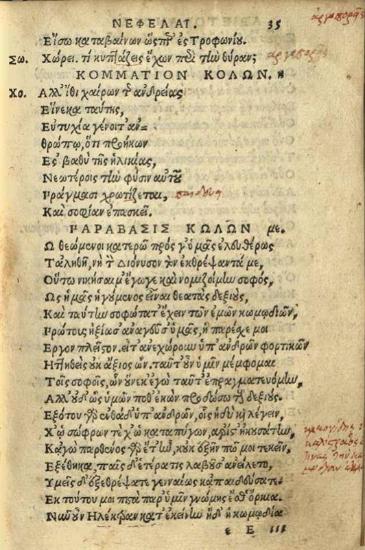 ΝΕΦΕΛΑΙ. 35
Εἴσω καταβαίνων ὥσπερ ἐς Τροφωνίου.
Σω. Χώρει. τί κυπτάζεις ἔχων περὶ τὴν θύραν;
ΚΟΜΜΑΤΙΟΝ ΚΩΛΩΝ. η
Χο. Ἀλλ' ἴθι χαίρων τῆς ἀνδρείας
Εἵνεκα ταύτης,
Εὐτυχία γένοιτ' ἀν-
θρώπῳ, ὅτι προήκων
Ἐς βαθὺ τῆς ἡλικίας,
Νεωτέροις τὴν φύσιν αὐτοῦ
Πράγμασι χρωτίζεται,
Καὶ σοφίαν ἐπασκεῖ.
ΠΑΡΑΒΑΣΙΣ ΚΩΛΩΝ με.
Ὦ θεώμενοι κατερῶ πρὸς γ' ὑμᾶς ἐλευθέρως
Τἀληθῆ, νὴ τὸν Διόνυσον τὸν ἐκθρέψαντά με,
Οὕτω νικήσαιμ' ἔγωγε καὶ νομιζοίμην σοφός,
Ὡς ὑμᾶς ἡγούμενος εἶναι θεατὰς δεξιούς,
Καὶ ταύτην σοφώτατ' ἔχειν τῶν ἐμῶν κωμῳδιῶν,
Πρώτους ἠξίωσ' ἀναγεῦσ' ὑμᾶς, ἣ παρέσχε μοι
Ἔργον πλεῖστον. εἶτ' ἀνεχώρουν ὑπ' ἀνδρῶν φορτικῶν
Ἡττηθεὶς οὐκ ἄξιος ὤν. ταῦτ' οὖν ὑμῖν μέμφομαι
Τοῖς σοφοῖς, ὧν οὕνεκ' ἐγὼ ταῦτ' ἐπραγματευόμην,
Ἀλλ' οὐδ' ὣς ὑμῶν ποθ' ἑκὼν προδώσω τοὺς δεξιούς.
Ἐξ ὅτου γὰρ ἐνθάδ' ὑπ' ἀνδρῶν, οἷς ἡδὺ καὶ λέγειν,
Χὠ σώφρων τε χὠ καταπύγων, ἄριστ' ἠκουσάτην,
Κἀγὼ παρθένος γὰρ ἔτ' ἦν, κοὐκ ἐξῆν πώ μοι τεκεῖν,
Ἐξέθηκα, παῖς δ' ἑτέρα τις λαβοῦσ' ἀνείλετο,
Ὑμεῖς δ' ἐξεθρέψατε γενναίως κἀπαιδεύσατε.
Ἐκ τούτου μοι πιστὰ παρ' ὑμῖν γνώμης ἔσθ' ὅρκια.
Νῦν οὖν Ἠλέκτραν κατ' ἐκείνην ἥδ' ἡ κωμῳδία
ε Ε III